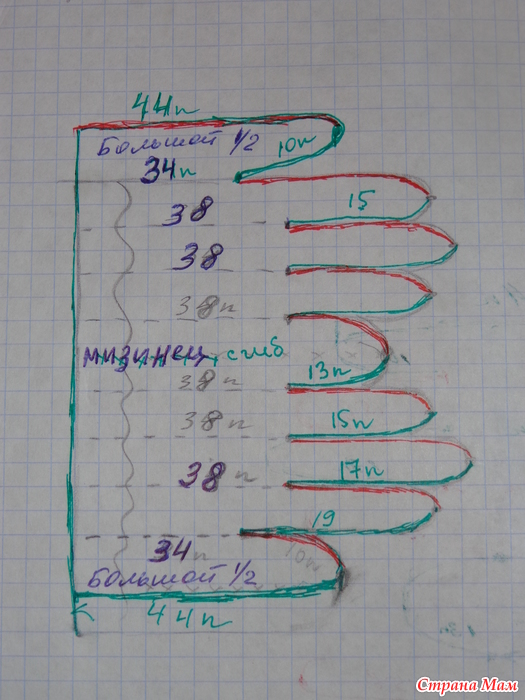 44п
Большой 1/2
10п
34п
15
38
38
38п
мизинец, сгиб
13п
38п
38п
15п
38
17п
19
34п
Большой 1/2
44п
Страна Мам